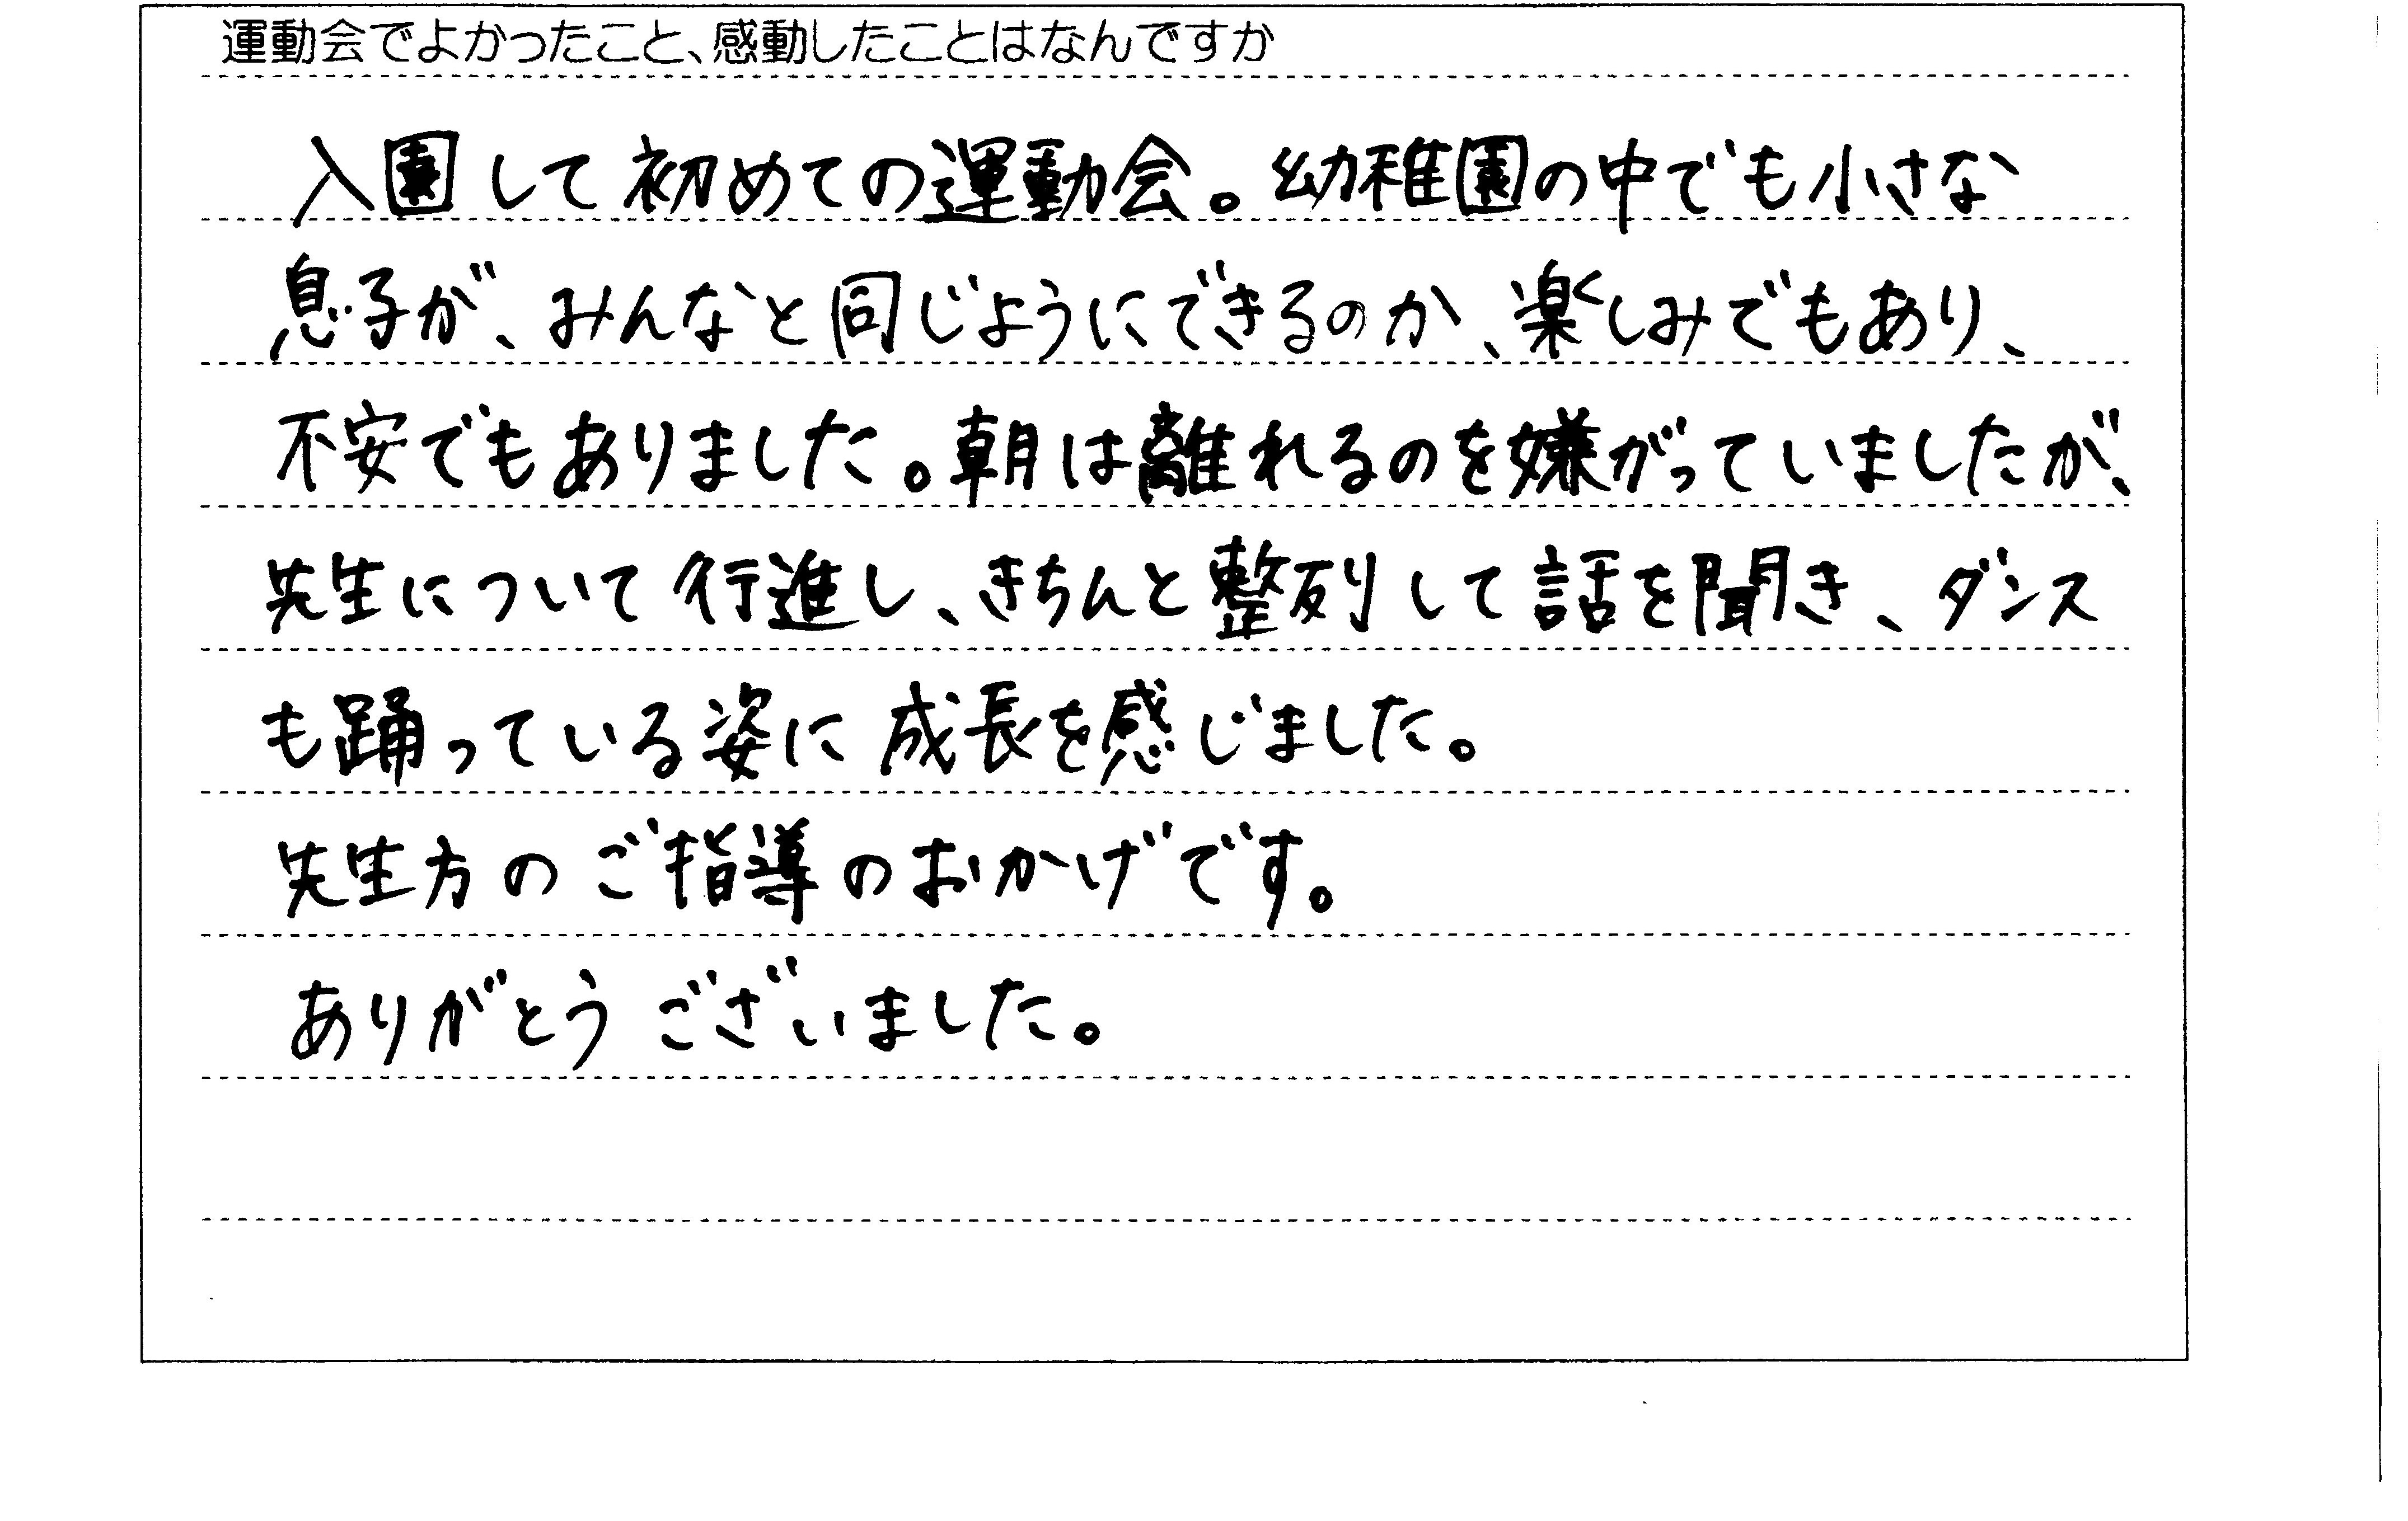 運動会でよかったこと、感動したことはなんですか
入園して初めての運動会。幼稚園の中でも小さな
息子が、みんなと同じようにできるのか、楽しみでもあり、
不安でもありました。朝は離れるのを嫌がっていましたが、
先生について行進し、きちんと整列して話を聞き、ダンス
も踊っている姿に成長を感じました。
先生方のご指導のおかげです。
ありがとうございました。